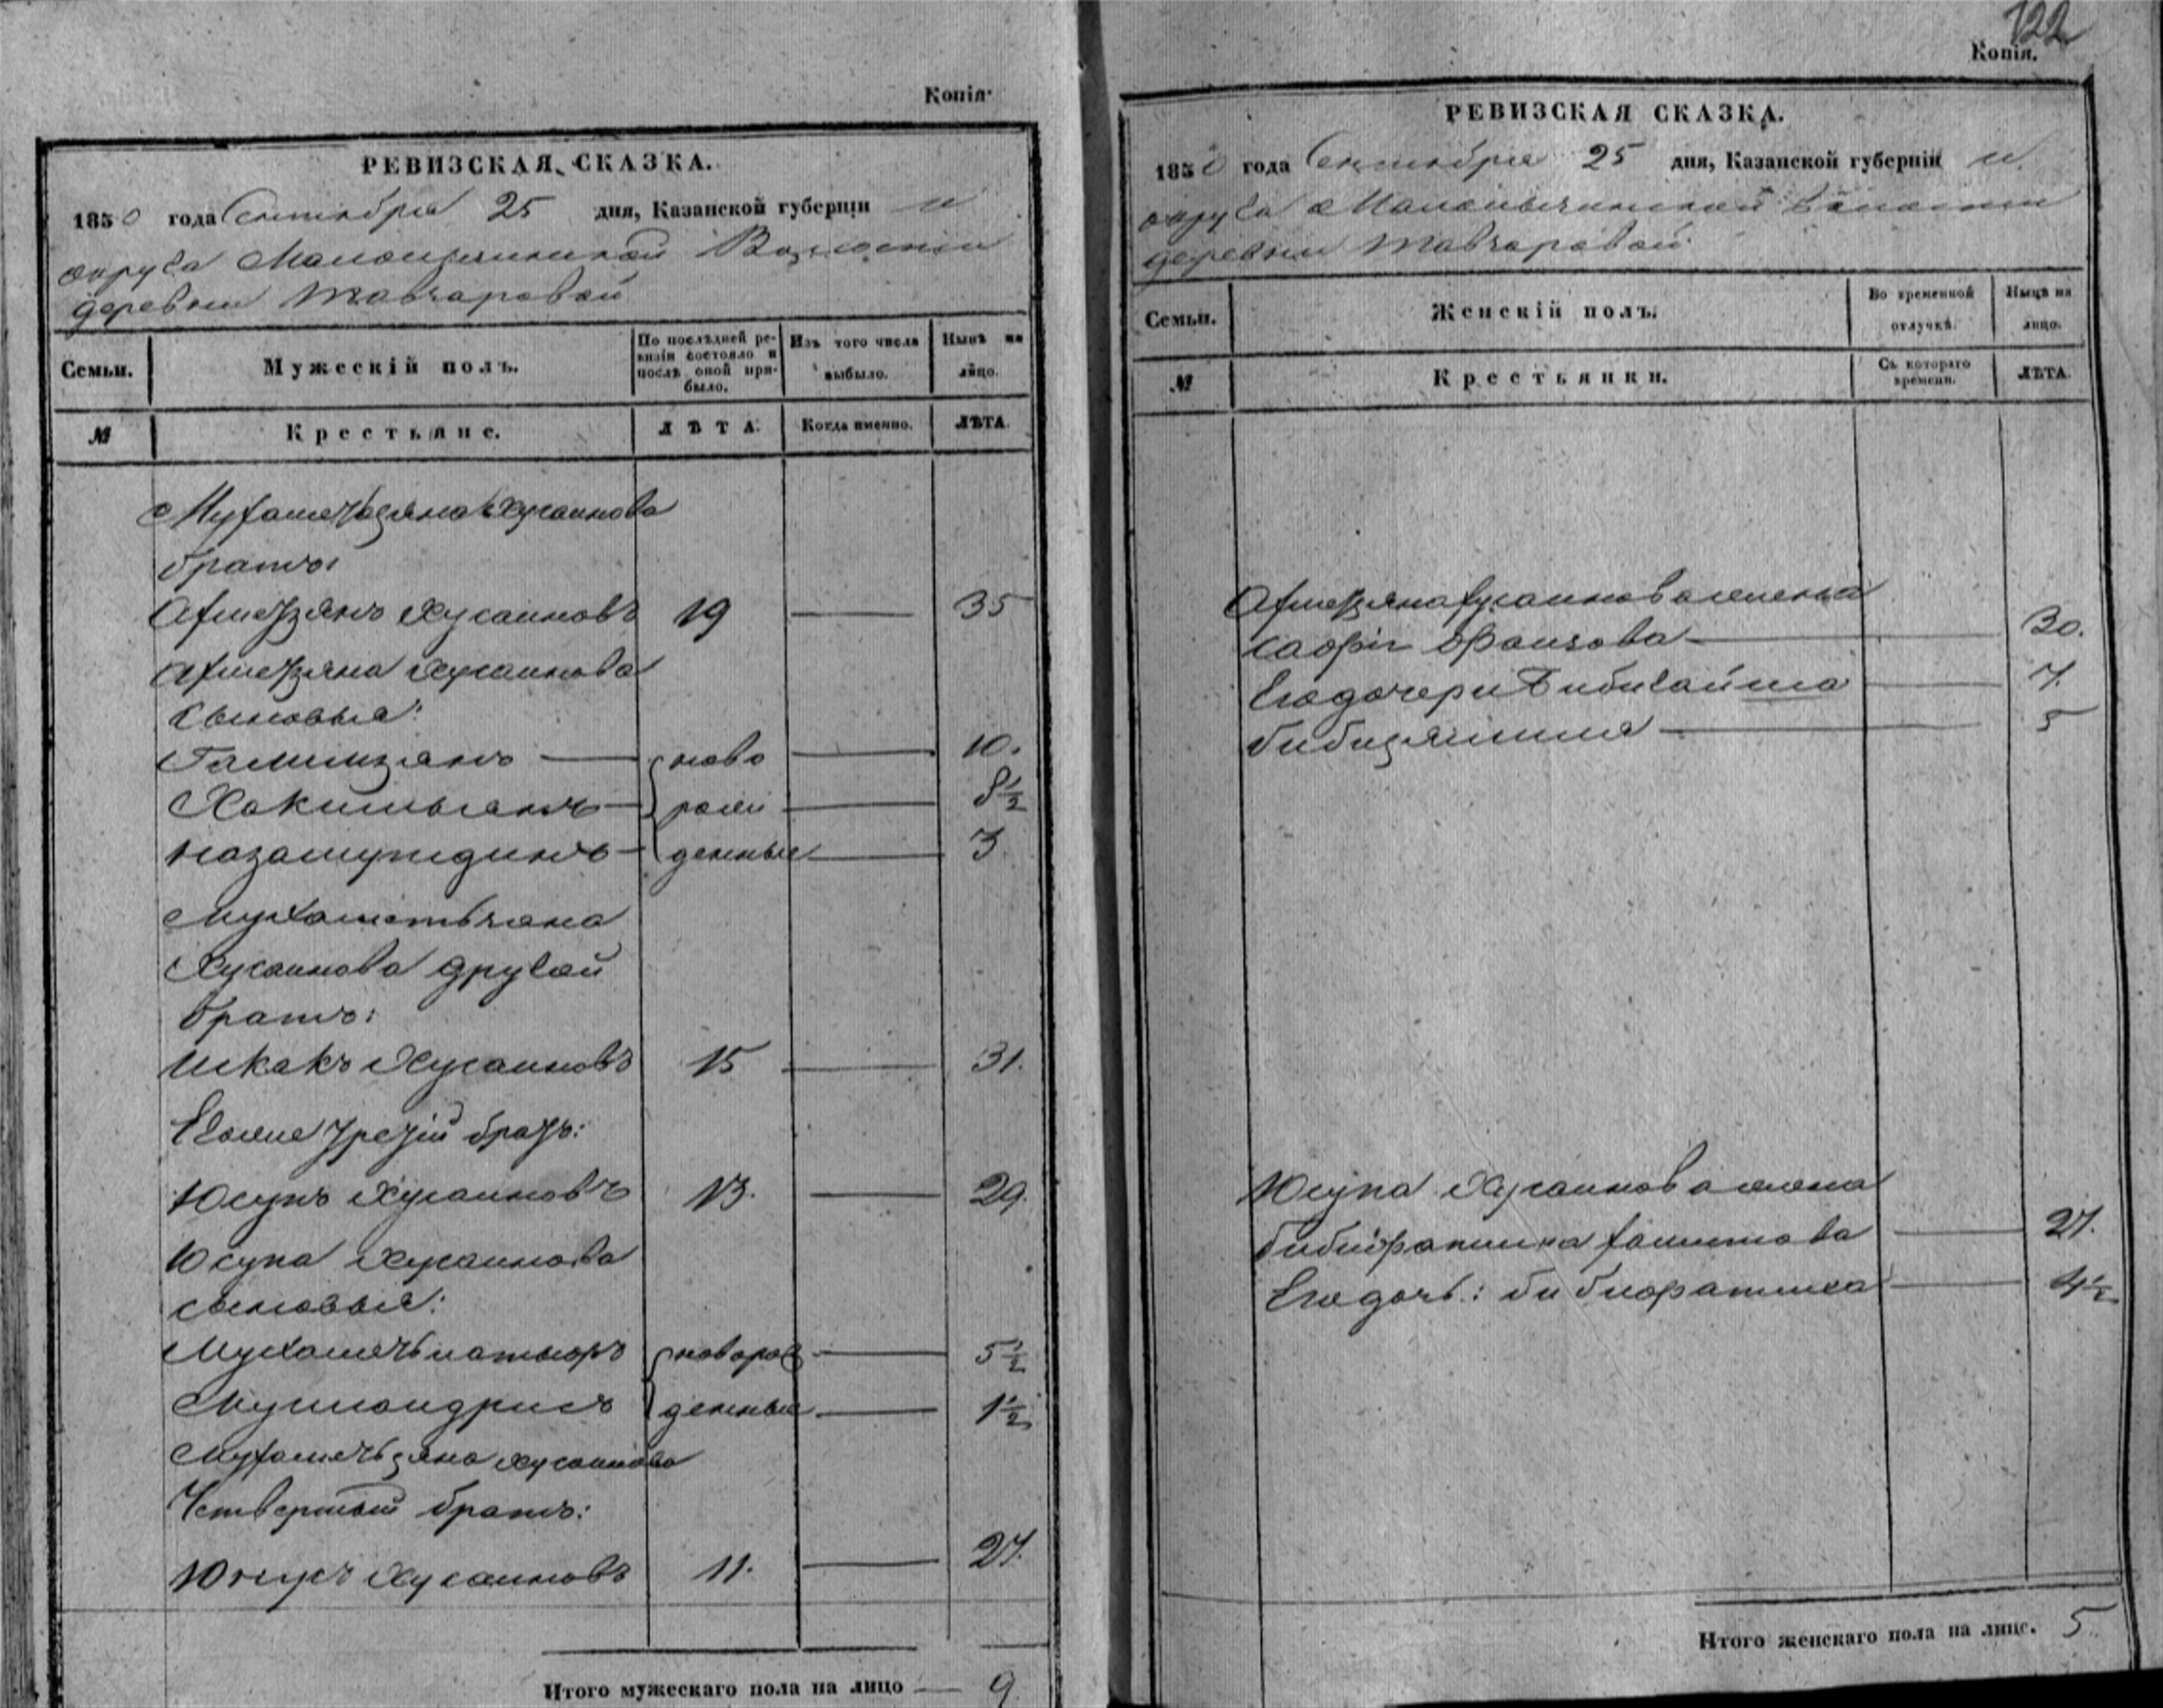 Копія.
РЕВИЗСКАЯ СКАЗКА.
1850 года Сентября 25 дня, Казанской губерніи и
округа Волости
деревни Тавчаровой
Семьи.
Мужескій полъ.
По послѣдней ревизіи состояло и послѣ оной прибыло.
Изъ того числа выбыло.
Нынѣ на лицо.
№
Крестьяне.
ЛѢТА.
Когда именно.
ЛѢТА.
Мухаметьзяна Хусаинова
братъ:
Ахметзянъ Хусаиновъ 19 — 35
Ахметзяна Хусаинова
сыновья:
Галимзянъ — ново — 10.
Хакимьянъ — рож — 8½
денные — 3.
Мухаметьзяна
Хусаинова другой
братъ:
Исхакъ Хусаиновъ 15 — 31.
Егоже третій братъ:
Юсупъ Хусаиновъ 13. — 29.
Юсупа Хусаинова
сыновья:
новорож — 5½
денные — 1½
Мухаметьзяна Хусаинова
Четвертый братъ:
Хусаиновъ 11. — 27.
Итого мужескаго пола на лицо — 9
122
Копія.
РЕВИЗСКАЯ СКАЗКА.
1850 года Сентября 25 дня, Казанской губерніи и
округа Волости
деревни Тавчаровой
Семьи.
Женскій полъ.
Во временной отлучкѣ.
Нынѣ на лицо.
№
Крестьянки.
Съ котораго времени.
ЛѢТА.
Ахметзяна Хусаинова жена
— 30.
Его дочери — 7.
— 5
Юсупа Хусаинова жена
— 27.
Его дочь: — 4½
Итого женскаго пола на лице. 5